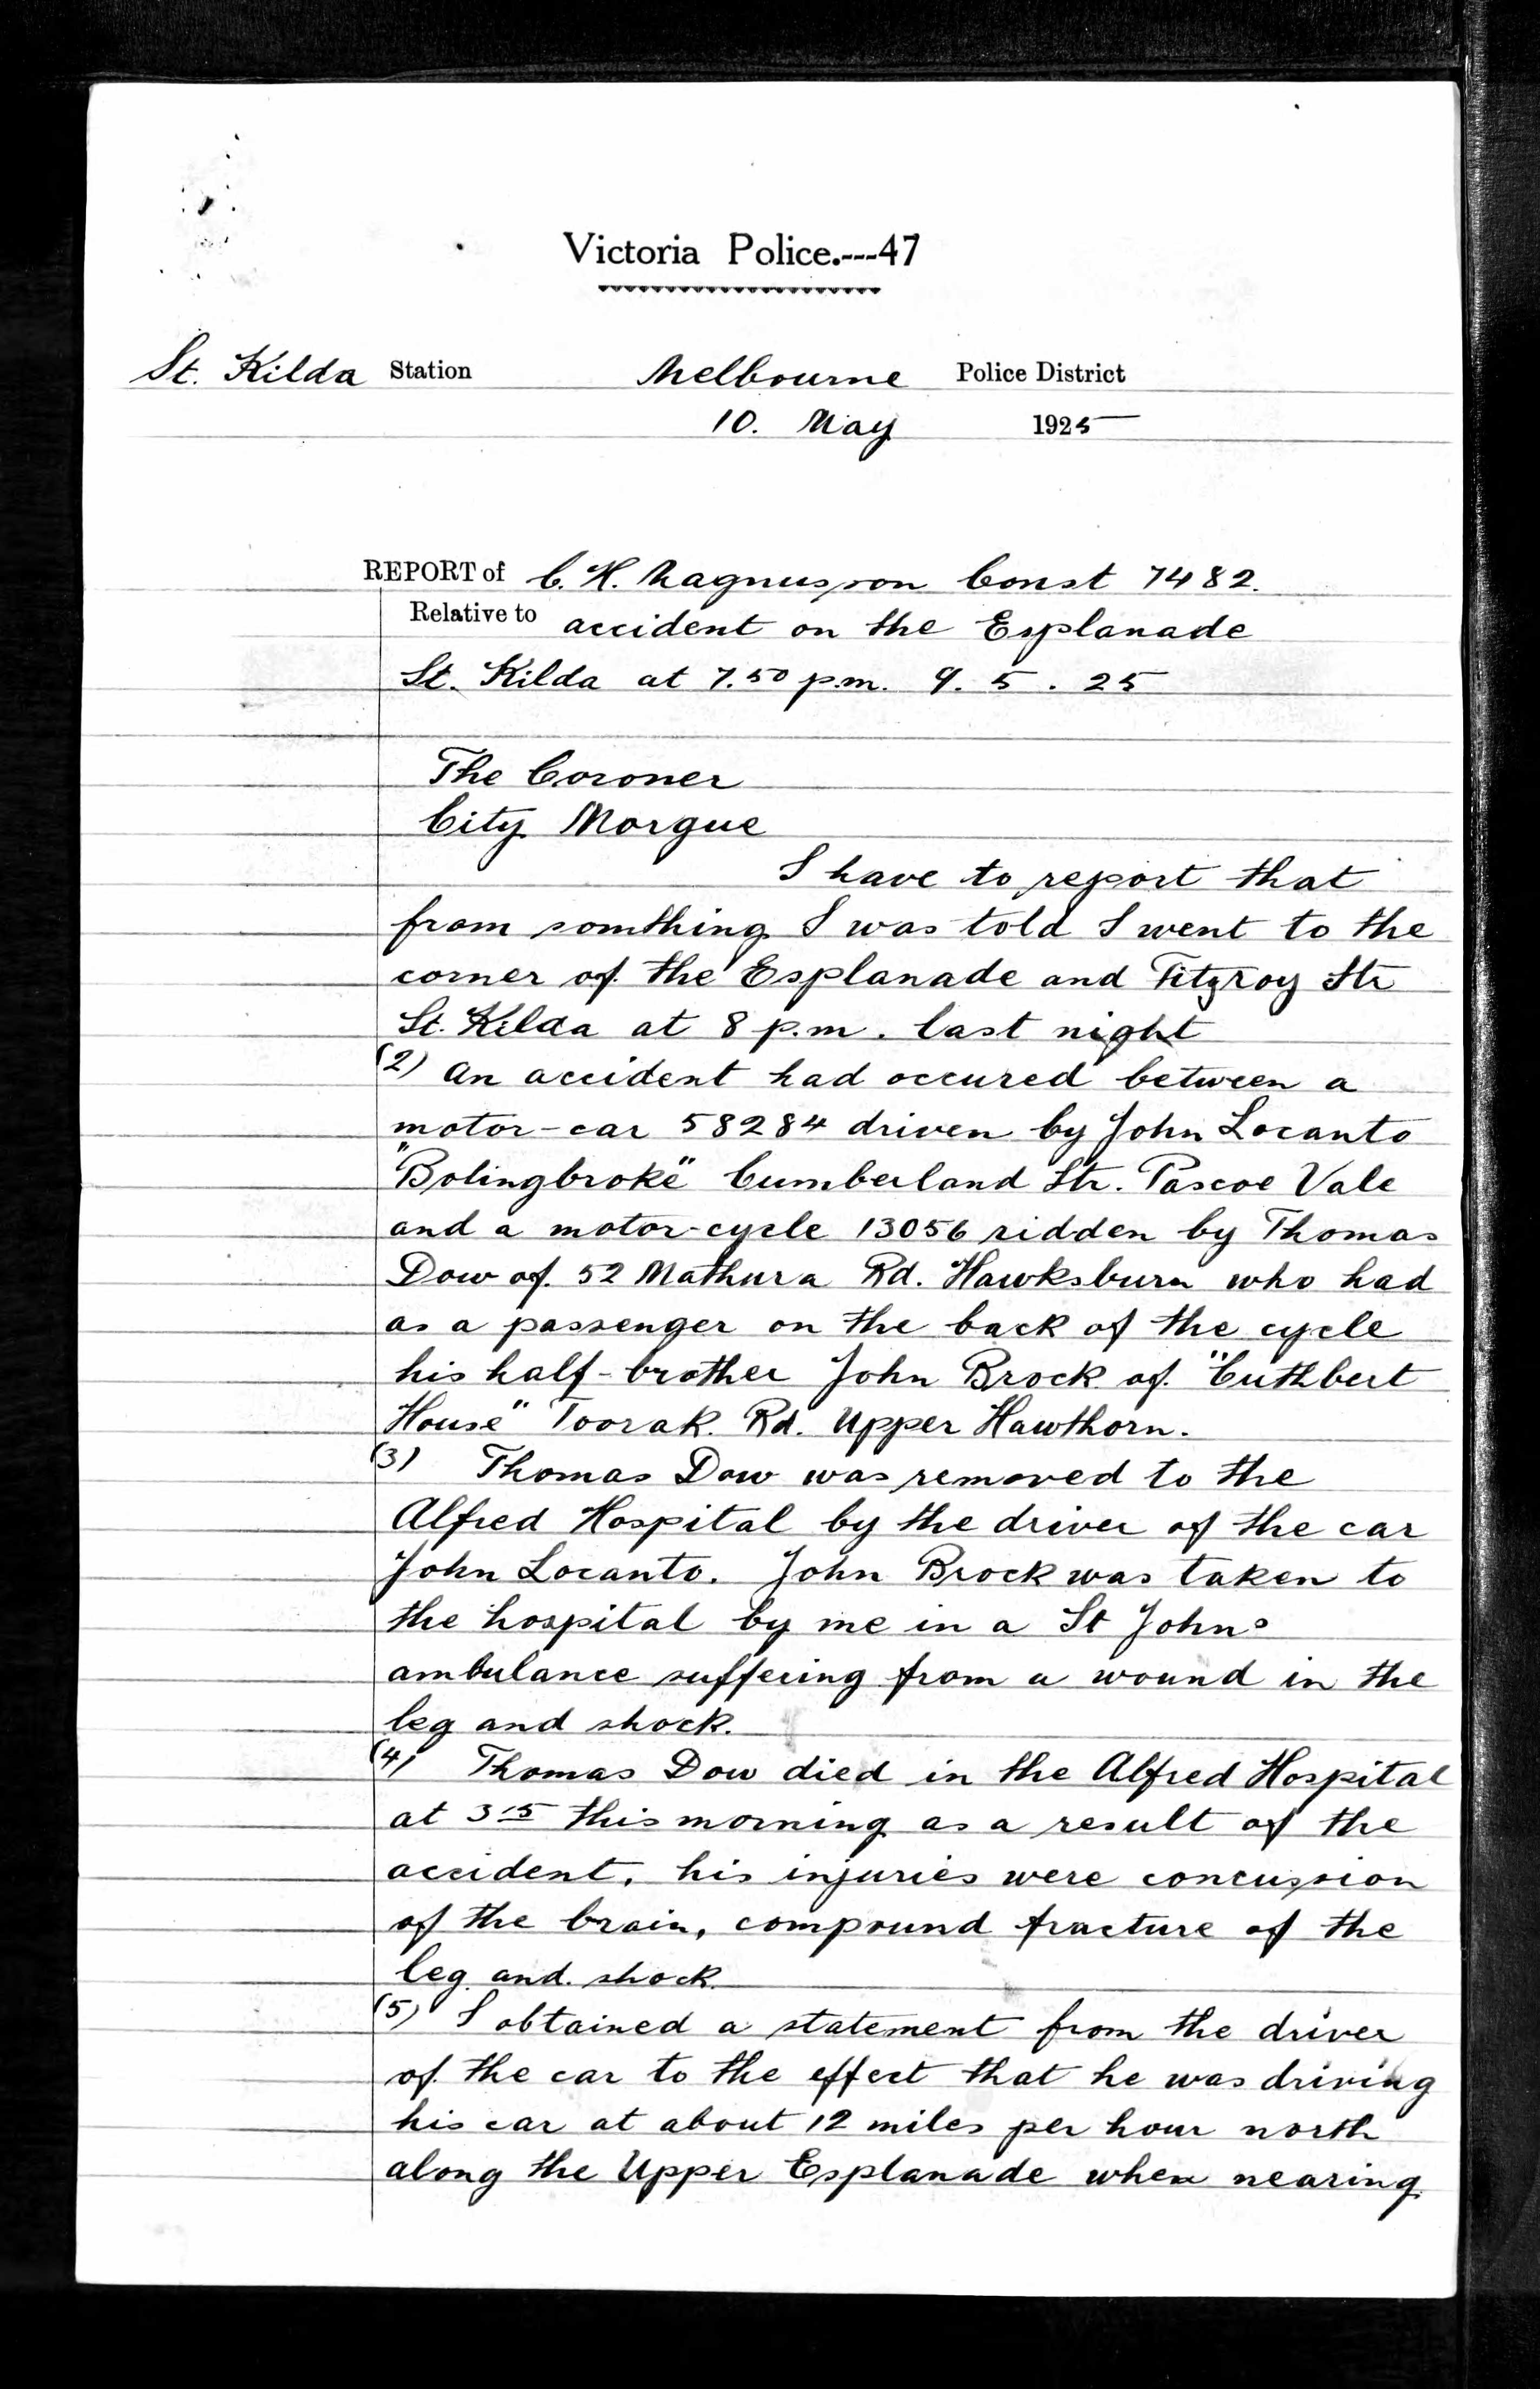 Victoria Police.---47
St. Kilda Station Melbourne Police District
10. May 1925
REPORT of C. H. Magnusson Const 7482.
Relative to accident on the Esplanade
St. Kilda at 7.50 p.m. 9. 5. 25
The Coroner
City Morgue
I have to report that
from somthing I was told I went to the
corner of the Esplanade and Fitzroy Str
St. Kilda at 8 p.m. last night
(2) An accident had occured between a
motor-car 58284 driven by John Locanto
"Bolingbroke" Cumberland Str. Pascoe Vale
and a motor-cycle 13056 ridden by Thomas
Dow of 52 Mathura Rd. Hawksburn who had
as a passenger on the back of the cycle
his half-brother John Brock of "Cuthbert
House" Toorak Rd. Upper Hawthorn.
(3) Thomas Dow was removed to the
Alfred Hospital by the driver of the car
John Locanto. John Brock was taken to
the hospital by me in a St Johns
ambulance suffering from a wound in the
leg and shock.
(4) Thomas Dow died in the Alfred Hospital
at 3.15 this morning as a result of the
accident, his injuries were concussion
of the brain, compound fracture of the
leg and shock.
(5) I obtained a statement from the driver
of the car to the effect that he was driving
his car at about 12 miles per hour north
along the Upper Esplanade when nearing